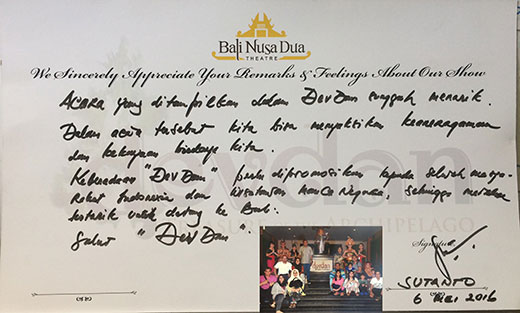 Bali Nusa Dua
THEATRE
We Sincerely Appreciate Your Remarks & Feelings About Our Show
ACARA yang ditampilkan dalam DevDan sungguh menarik.
Dalam acara tersebut kita bisa menyaksikan keanekaragaman
dan kekayaan budaya kita.
Keberadaan "DevDan" perlu dipromosikan kepada seluruh masya-
rakat Indonesia dan wisatawan manca negara, sehingga mereka
tertarik untuk datang ke Bali.
Salut "DevDan".
devdan
ARCHIPELAGO
Signature
SUTANTO
6 Mei 2016